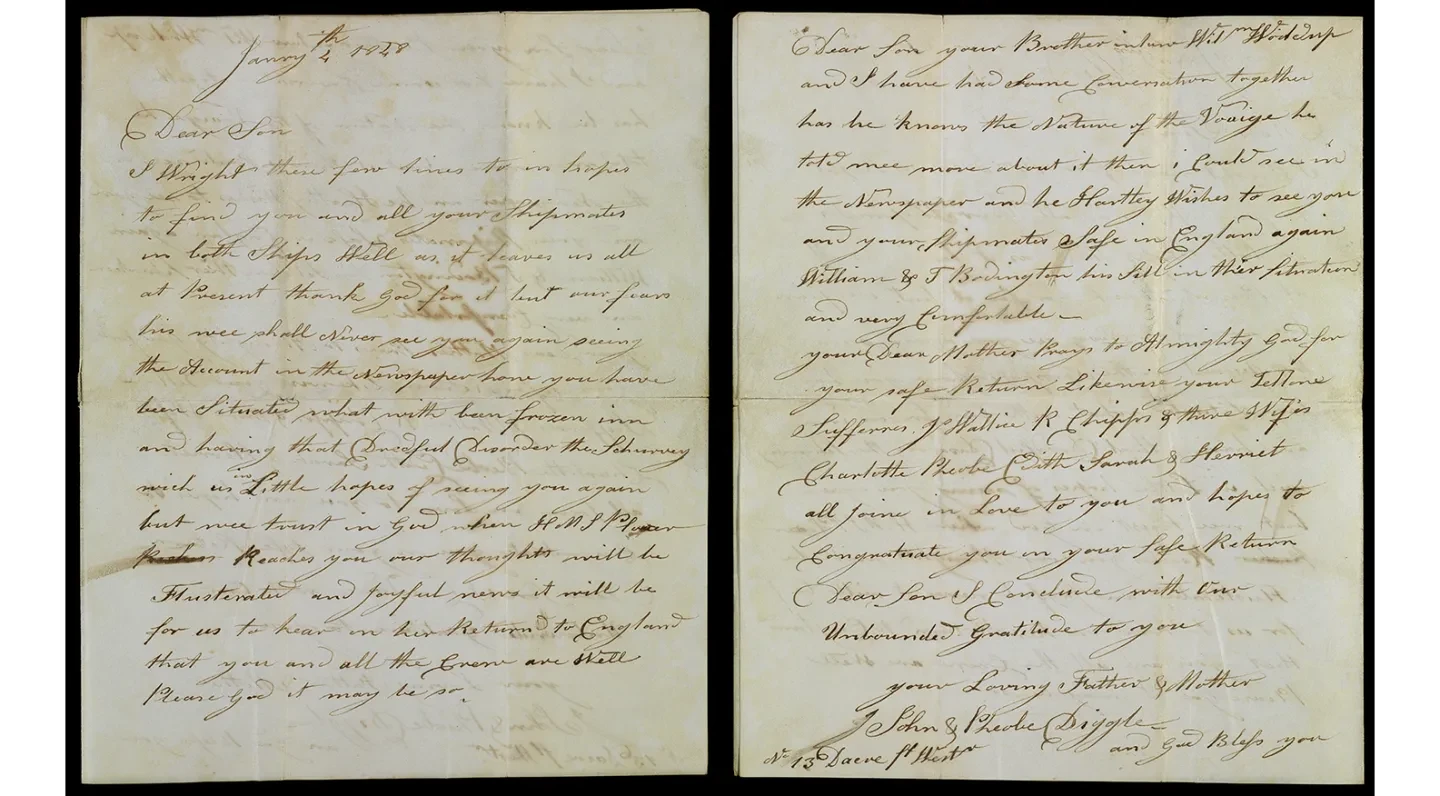 Janry 4th 1848
Dear Son
I Wright these few lines to in hopes
to find you and all your Shipmates
in both Ships Well as it leaves us all
at Present thank God for it but our fears
his wee shall Never see you again seeing
the Account in the Newspaper how you have
been Situated what with been frozen inn
and having that Dredful Disorder the Schurvey
wich us in Little hopes of seeing you again
but wee trust in God when H M S Plover
Reaches you our thoughts will be
Flusterated and Joyful news it will be
for us to hear on her Return to England
that you and all the Crew are Well
Please God it may be so
Dear Son your Brother inlaw Wm
and I have had Some Conversation together
has he knows the Nature of the Voaige he
told mee more about it then i Could see in
the Newspaper and he Hartley Wishes to see you
and your Shipmates Safe in England again
William & T Bodington his Sill in thier Situation
and very Comfortable
your Dear Mother Prays to Almighty God for
your safe Return Likewise your Fellow
Sufferres Jo Wallice R Chipps & there Wifes
Charlotte Pheobe Edith Sarah & Herriet
all Joine in Love to you and hopes to
Congratuate you on your Safe Return
Dear Son I Conclude with our
Unbounded Gratitude to you
your Loving Father & Mother
John & Pheobe Diggle
and God Bless you
No 13 Dacre St Westr